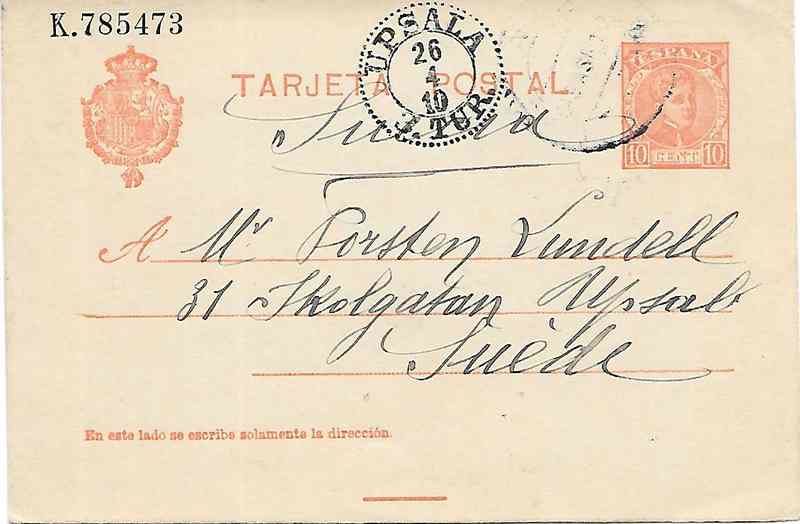 K.785473
UPSALA
26
4
10
3. TUR.
TARJETA POSTAL
ESPAÑA
10 CENT 10
Suecia
A Mr Torsten Lundell
31 Skolgatan Upsal
Suède
En este lado se escribe solamente la dirección.